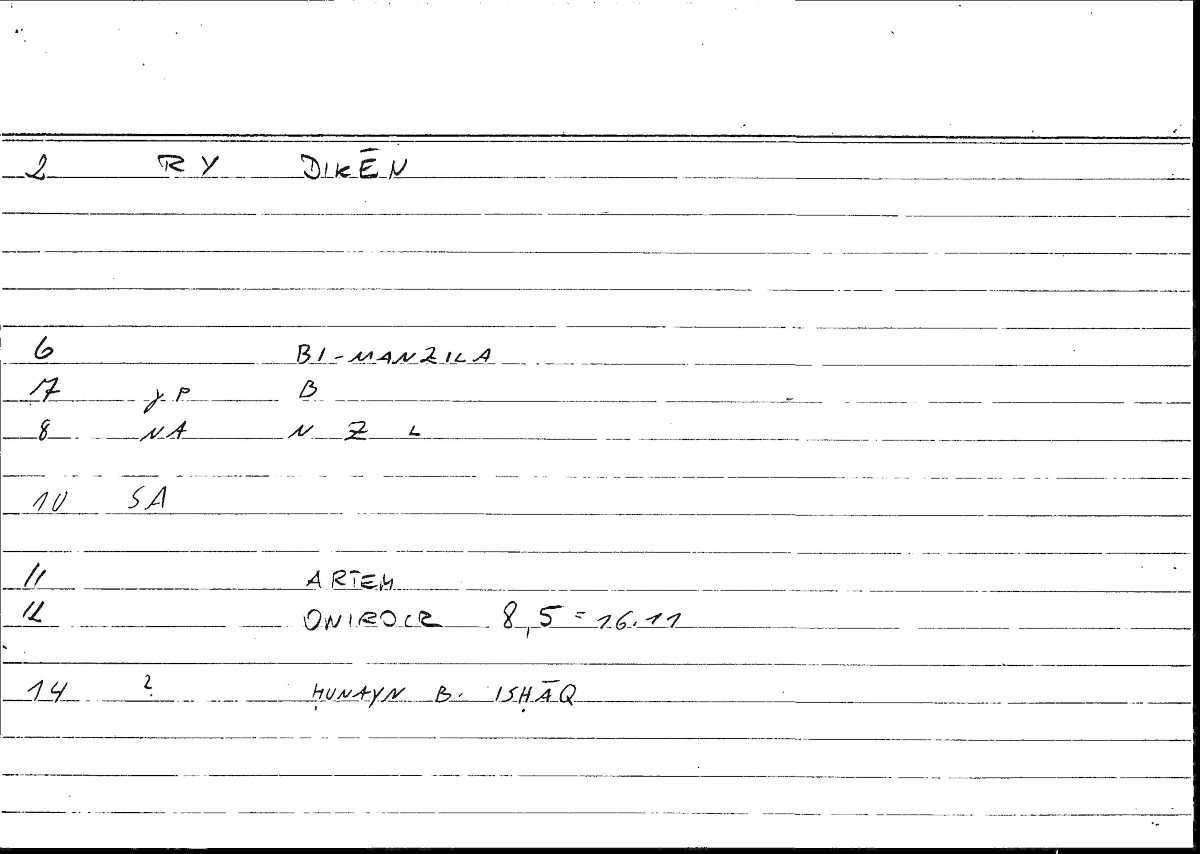 2 RY DIKĒN
6 BI-MANZILA
7 γP B
8 NA N Z L
10 SA
11 ARTEM
12 ONIROCR 8,5=16.11
14 ? ḤUNAYN B. ISḤĀQ